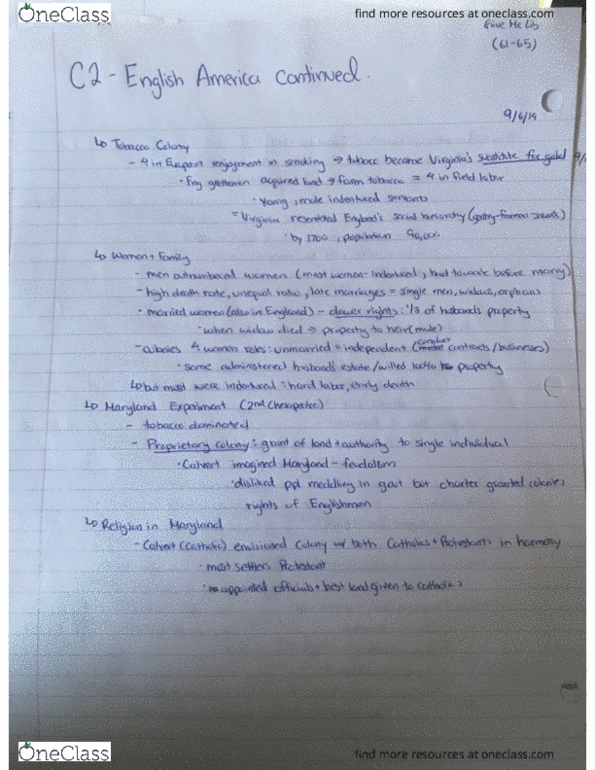 OneClass
find more resources at oneclass.com
Give Me Lib
(61-65)
C2 - English America Continued.
9/6/19
↳ Tobacco Colony
- ↑ in European enjoyment in smoking → tobacc became Virginia's substitute for gold
• Eng gentlemen acquired land → farm tobacco = ↑ in field labor
• Young, male indentured servants
= Virginia resembled England's social hierarchy (gentry-farmers-
• by 1700, population 90,000
↳ Women + Family
- men outnumbered women (most women-indentured, had to work before marry)
- high death rate, unequal ratio, late marriages = single men, widows, orphans
- married women (also in England) - dower rights: 1/3 of husbands property
• when widow died → property to heir (male)
- colonies ↑ women roles: unmarried = independent (conduct contracts/businesses)
• some administered husband's estate/willed 100% property
↳ but most were indentured: hard labor, early death
↳ Maryland Experiment (2nd Chesapeake)
- tobacco dominated
- Proprietary colony: grant of land + authority to single individual
• Calvert imagined Maryland - feudalism
• disliked ppl meddling in govt but charter granted colonies
rights of Englishmen
↳ Religion in Maryland
- Calvert (Catholic) envisioned Colony w/ both Catholics + Protestants in harmony
• most settlers Protestant
• appointed officials + best land given to Catholics
OneClass
find more resources at oneclass.com